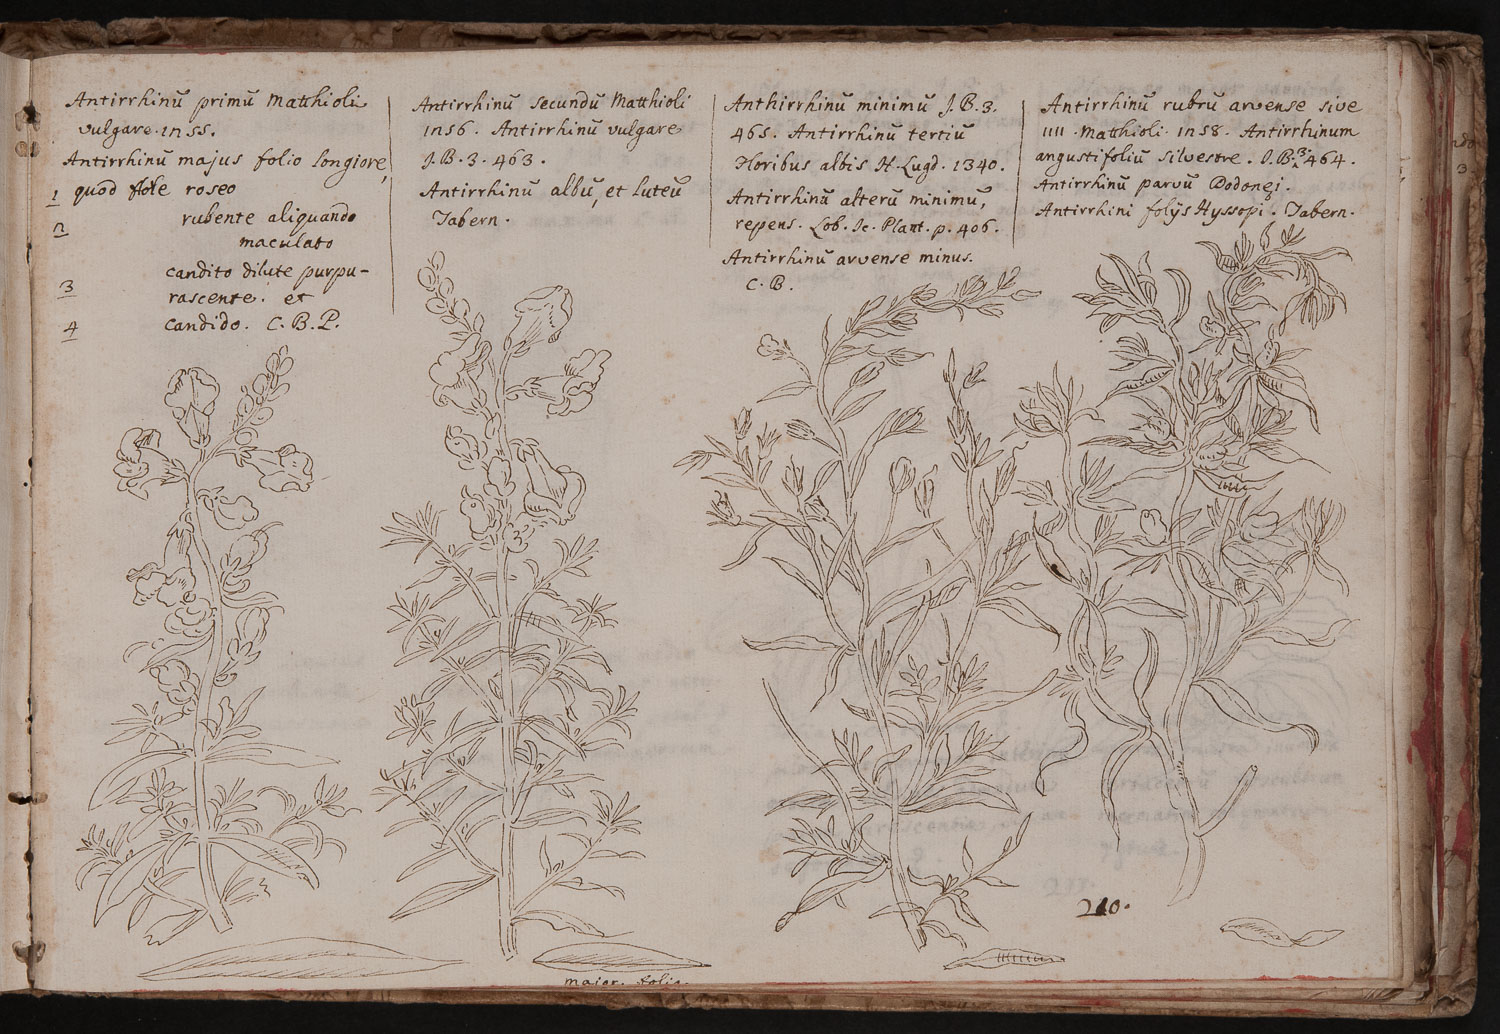 Antirrhinū primū Matthioli
vulgare. 1155.
Antirrhinū majus folio longiore,
1 quod flore roseo
2 rubente aliquando
maculato
3 candito dilute purpu-
rascente. et
4 candido. C. B. P.
Antirrhinū secundū Matthioli
1156. Antirrhinū vulgare
J. B. 3. 463.
Antirrhinū albū, et luteū
Tabern.
Anthirrhinū minimū J. B. 3.
465. Antirrhinū tertiū
floribus albis H. Lugd. 1340.
Antirrhinū alterū minimū,
repens. Lob. Ic. Plant. p. 406.
Antirrhinū arvense minus.
C. B.
Antirrhinū rubrū arvense sive
IIII. Matthioli. 1158. Antirrhinum
angustifoliū silvestre. J. B. 3. 464.
Antirrhinū parvū Dodonęi.
Antirrhini folijs Hyssopi. Tabern.
210.
maior. folia.